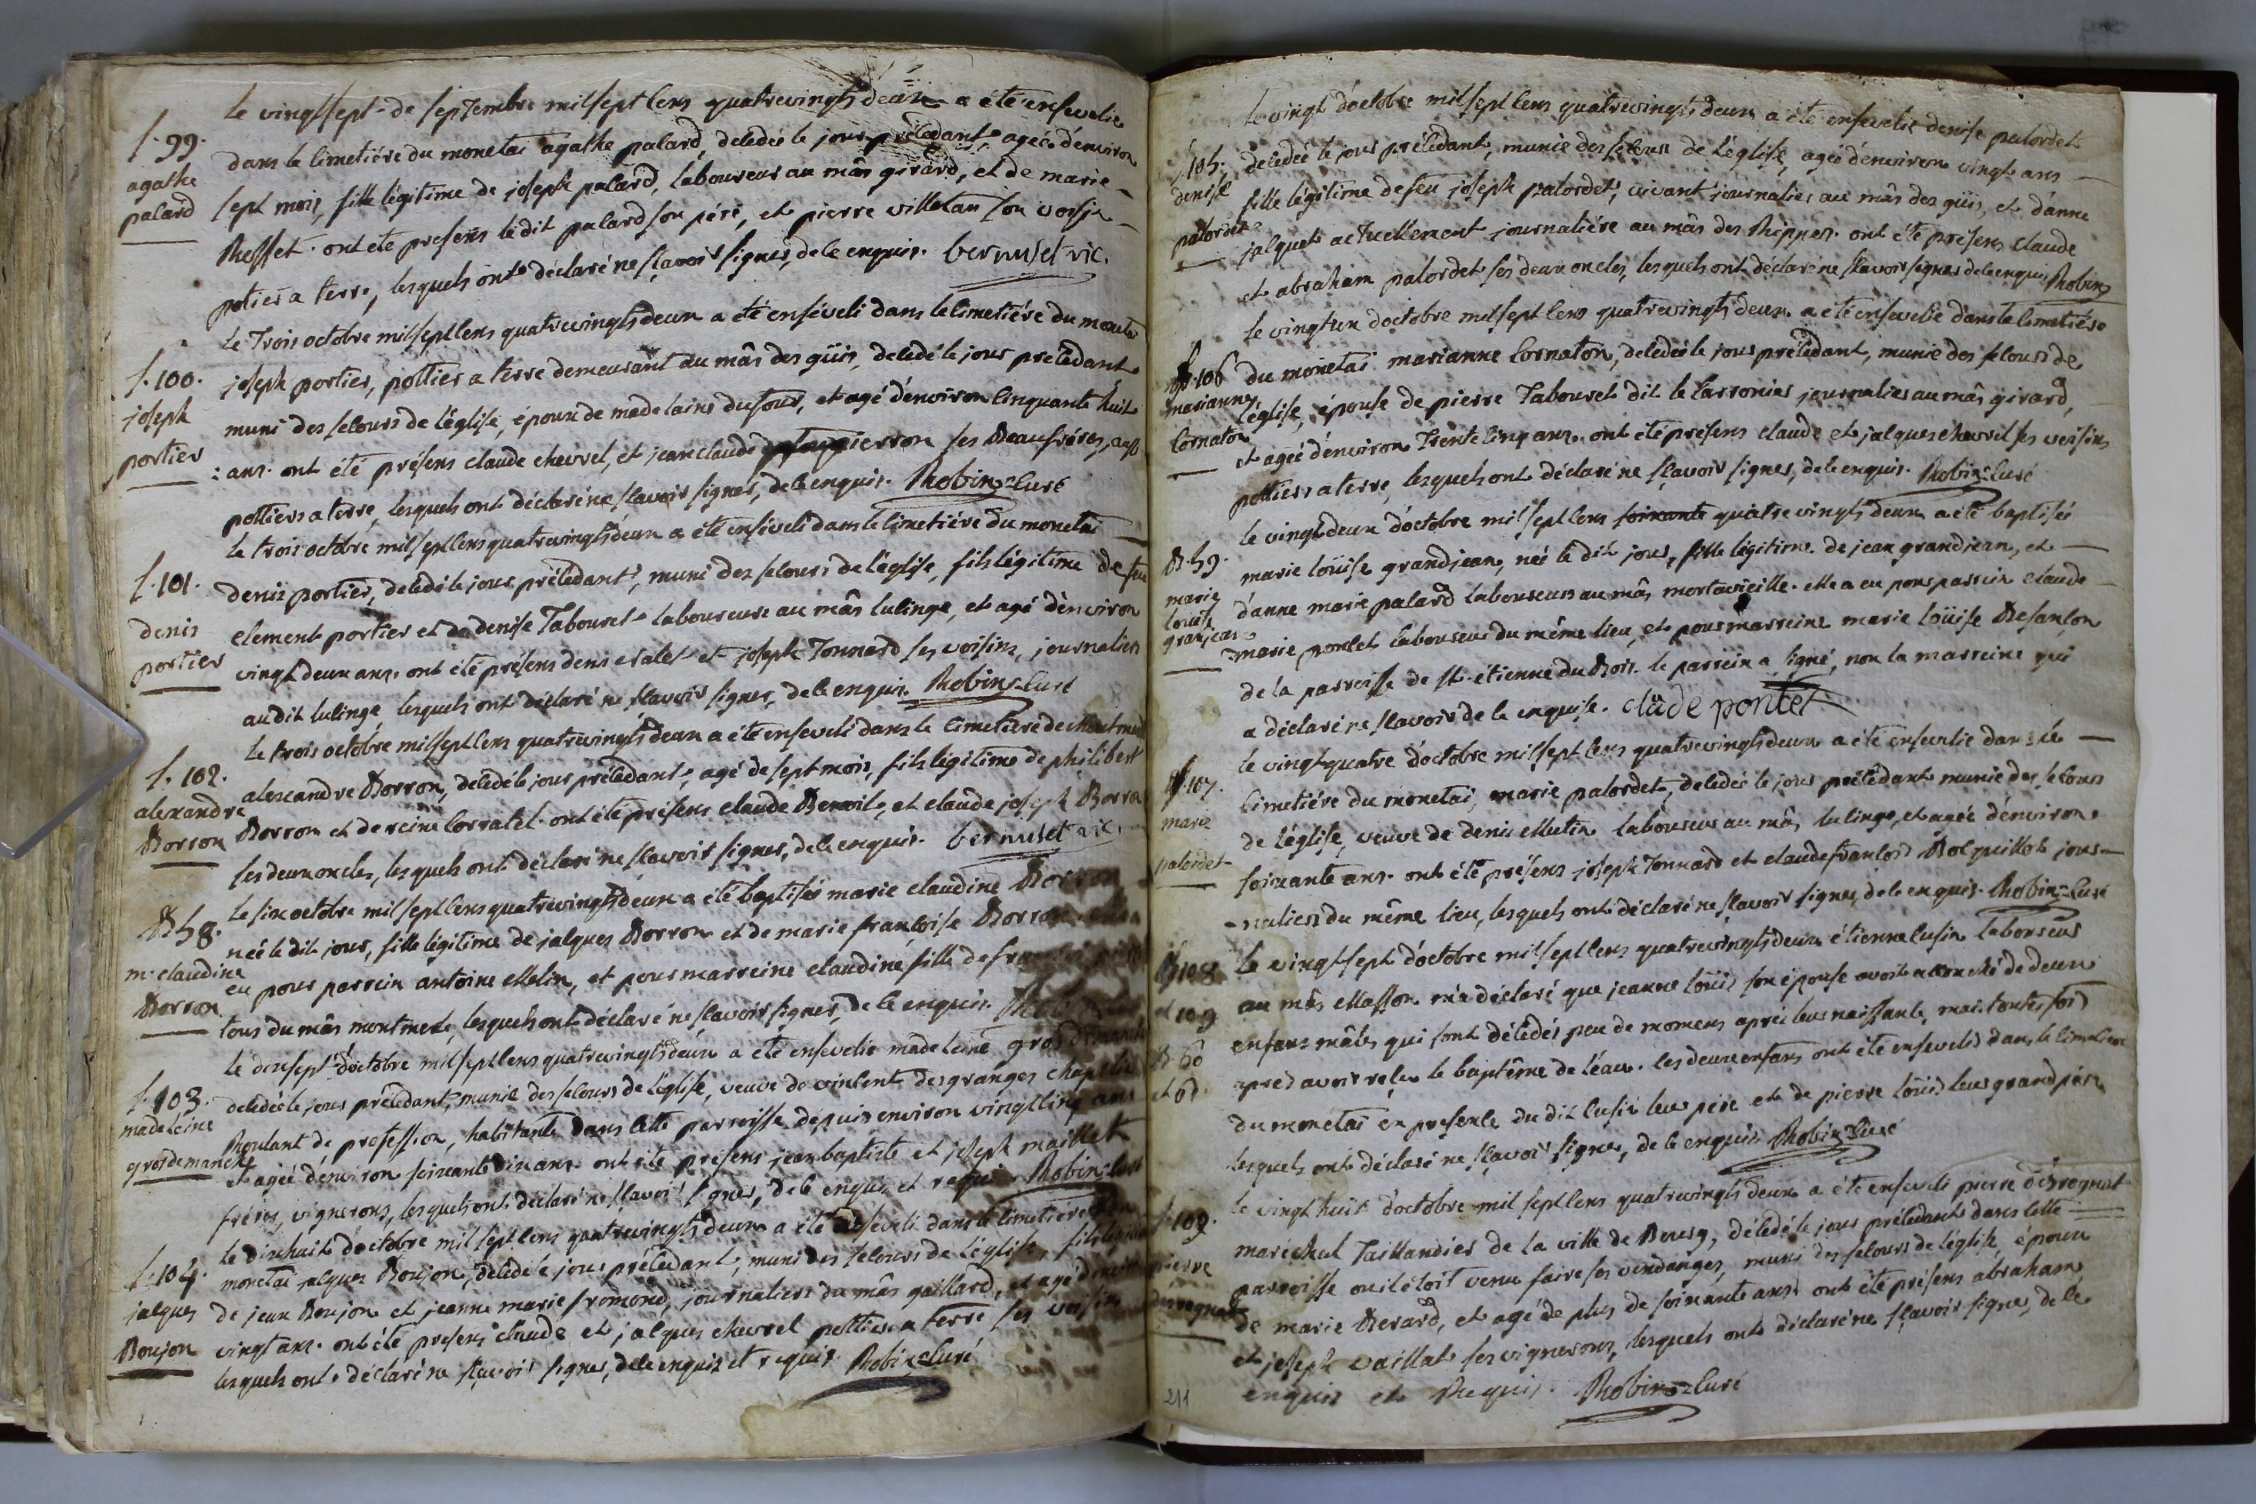 Le vingtsept de septembre milseptcens quatrevingtsdeux a été ensevelie
f. 99.
agathe
palard
dans le cimetiére du monetai agathe palard, decedée le jour précedant, agée d'environ
sept mois, fille légitime de joseph palard, laboureur au mâs girard, et de marie
Reffet. ont été presens ledit palard son pére, et pierre villetan son voisin
potier a terre, lesquels ont déclaré ne sçavoir signer, de ce enquis. bernuset vic.
f. 100.
joseph
portier
Le Trois octobre milseptcens quatrevingtsdeux a été enséveli dans le cimetiére du monetai
joseph portier, pottier a terre demeurant au mâs des güis, decedé le jour précedant
muni des secours de l'église, époux de madelaine dufour, et agé d'environ cinquante huit
: ans. ont été présens claude chevrel, et jean claude pierron ses Beaufréres, aussi
pottiers a terre, lesquels ont déclaré ne sçavoir signer, de ce enquis. Robin curé
f. 101.
denis
portier
le trois octobre milseptcens quatrevingtsdeux a été enséveli dans le cimetiére du monetai
denis portier, decedé le jour précedant, muni des secours de l'église, fils légitime de feu
clement portier et de denise Tabouret laboureurs au mâs lulinge, et agé d'environ
vingtdeux ans. ont été présens denis et joseph Tonnard ses voisins, journaliers
audit lulinge, lesquels ont déclaré ne sçavoir signer, de ce enquis. Robin curé
f. 102.
alexandre
Borron
Le trois octobre milseptcens quatrevingtsdeux a été enseveli dans le cimetiére de
alexandre Borron, decedé le jour précedant, agé de sept mois, fils légitime de philibert
Borron et de reine Corratel. ont été présens claude Benoit, et claude joseph Borron
ses deux oncles, lesquels ont déclaré ne sçavoir signer, de ce enquis. bernuset vic.
B 58.
m. claudine
Borron
Le six octobre milseptcens quatrevingtsdeux a été baptisée marie claudine Borron
née le dit jour, fille légitime de jacques Borron et de marie françoise Borron. elle a
eu pour parrein antoine Melin, et pour marreine claudine fille de
tous du mâs montmerle, lesquels ont déclaré ne sçavoir signer, de ce enquis. Robin
f. 103.
madeleine
grosdemanche
Le dixsept d'octobre milseptcens quatrevingtsdeux a été ensevelie madeleine grosdemanche
decedée le jour précedant, munie des secours de l'église, veuve de vincent desgranges
Roulant de profession, habitante dans cette parroisse depuis environ vingtcinq ans
et agée d'environ soixante dix ans. ont été présens jean baptiste et joseph maillet
fréres, vignerons, lesquels ont déclaré ne sçavoir signer, de ce enquis et requis. Robin curé
f. 104.
jacques
Boujon
Le dixhuit d'octobre milseptcens quatrevingtsdeux a été enseveli dans le cimetiere du
monetai jacques Boujon, decedé le jour précedant, muni des secours de l'église, fils légitime
de jean Boujon et jeanne marie fromond, journaliers du mâs gaillard, et agé d'environ
vingt ans. ont été presens claude et jacques chevrel pottiers a terre ses voisins
lesquels ont déclaré ne sçavoir signer, de ce enquis et requis. Robin curé
f. 105.
denise
palordet
Le vingt d'octobre milseptcens quatrevingtsdeux a été ensevelie denise palordet
decedée le jour précedant, munie des secours de l'église, agée d'environ vingt ans
fille légitime de feu joseph palordet, vivant journalier au mâs des güis, et d'anne
jacquet actuellement journaliére au mâs des Rippes. ont été présens claude
et abraham palordet ses deux oncles, lesquels ont déclaré ne sçavoir signer de ce enquis Robin
f. 106
marianne
Cornaton
le vingtun d'octobre milseptcens quatrevingtsdeux a été ensevelie dans le cimetiére
du monetai marianne Cornaton, decedée le jour précedant, munie des secours de
l'église, épouse de pierre Tabouret dit le Carronier journalier au mâs girard,
et agée d'environ Trentecinq ans. ont été présens claude et jacques chevrel ses voisins
pottiers a terre, lesquels ont déclaré ne sçavoir signer, de ce enquis. Robin curé
B. 59.
marie
louise
granjean
le vingtdeux d'octobre milseptcens soixante quatrevingtsdeux a été baptisée
marie loüise grandjean, née le dit jour, fille légitime de jean grandjean, et
d'anne marie palard laboureurs au mâs mortavieille. elle a eu pour parrein claude
marie pontet laboureur du même lieu, et pour marreine marie loüise Besançon
de la parroisse de st. étienne du Bois. le parrein a signé, non la marreine qui
a déclaré ne sçavoir de ce enquise. claüde pontet
f. 107.
marie
palordet
le vingtquatre d'octobre milseptcens quatrevingtsdeux a été ensevelie dans le
cimetiére du monetai, marie palordet, decedée le jour précedant munie des secours
de l'église, veuve de denis Mutin laboureur au mâs lulinge, et agée d'environ
soixante ans. ont été présens joseph Tonnard et claude françois Bocquillot jour-
-naliers du même lieu, lesquels ont déclaré ne sçavoir signer, de ce enquis. Robin curé
f. 108
et 109
B. 60
et 61.
Le vingtsept d'octobre milseptcens quatrevingtsdeux étienne cusin laboureur
au mâs Masson m'a déclaré que jeanne loüis son épouse avoit accouché de deux
enfans mâles qui sont décédés peu de momens aprés leur naissance, mais toutesfois
aprés avoir reçu le baptême de l'eau. les deux enfans ont été ensevelis dans le cimetiere
du monetai en presence du dit cusin leur pére et de pierre loüis leur grand pére
lesquels ont déclaré ne sçavoir signer, de ce enquis. Robin curé
f. 109.
pierre
desvognat
le vingthuit d'octobre milseptcens quatrevingtsdeux a été enseveli pierre desvognat
maréchal Taillandier de la ville de Bourg, décedé le jour précedant dans cette
parroisse ou il étoit venu faire ses vendanges, muni des secours de l'église, époux
de marie Berard, et agé de plus de soixante ans. ont été présens abraham
et joseph vaillat ses vignerons, lesquels ont déclaré ne sçavoir signer, de ce
enquis et Requis. Robin curé
211